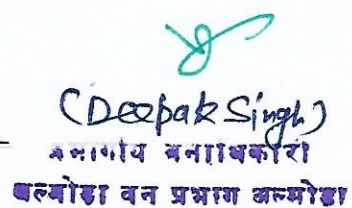 (Deepak Singh)
प्रभागीय वनाधिकारी
अल्मोड़ा वन प्रभाग अल्मोड़ा